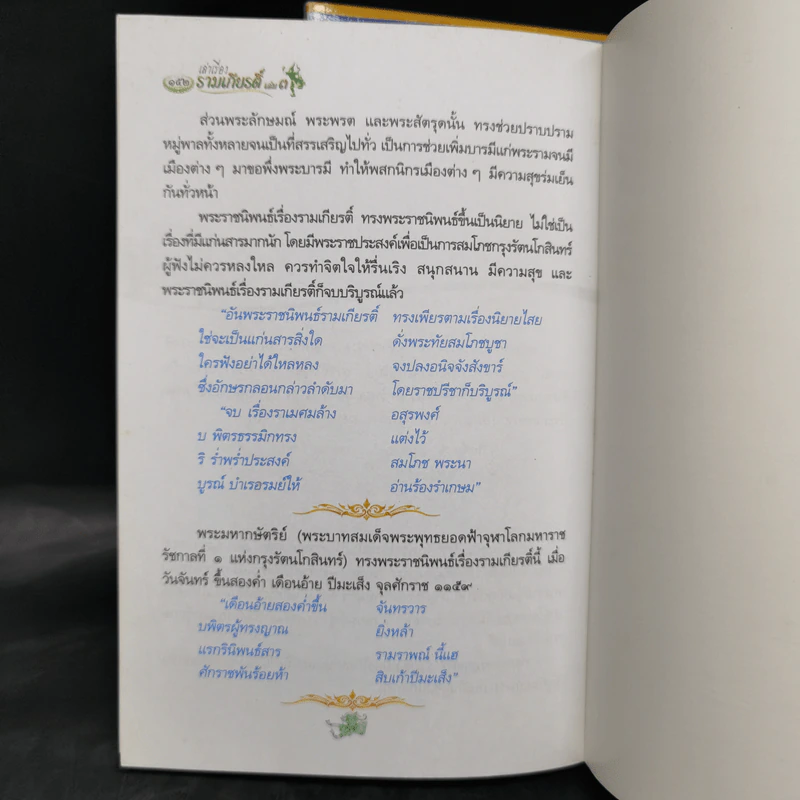 ๑๕๒
เล่าเรื่อง
รามเกียรติ์ เล่ม ๓
ส่วนพระลักษมณ์ พระพรต และพระสัตรุดนั้น ทรงช่วยปราบปราม
หมู่พาลทั้งหลายจนเป็นที่สรรเสริญไปทั่ว เป็นการช่วยเพิ่มบารมีแก่พระรามจนมี
เมืองต่าง ๆ มาขอพึ่งพระบารมี ทำให้พสกนิกรเมืองต่าง ๆ มีความสุขร่มเย็น
กันทั่วหน้า
พระราชนิพนธ์เรื่องรามเกียรติ์ ทรงพระราชนิพนธ์ขึ้นเป็นนิยาย ไม่ใช่เป็น
เรื่องที่มีแก่นสารมากนัก โดยมีพระราชประสงค์เพื่อเป็นการสมโภชกรุงรัตนโกสินทร์
ผู้ฟังไม่ควรหลงใหล ควรทำจิตใจให้รื่นเริง สนุกสนาน มีความสุข และ
พระราชนิพนธ์เรื่องรามเกียรติ์ก็จบบริบูรณ์แล้ว
“อันพระราชนิพนธ์รามเกียรติ์ ทรงเพียรตามเรื่องนิยายไสย
ใช่จะเป็นแก่นสารสิ่งใด ดั่งพระทัยสมโภชบูชา
ใครฟังอย่าได้ใหลหลง จงปลงอนิจจังสังขาร์
ซึ่งอักษรกลอนกล่าวลำดับมา โดยราชปรีชาก็บริบูรณ์”
“จบ เรื่องราเมศมล้าง อสุรพงศ์
บ พิตรธรรมิกทรง แต่งไว้
ริ ร่ำพร่ำประสงค์ สมโภช พระนา
บูรณ์ บำเรอรมย์ให้ อ่านร้องรำเกษม”
พระมหากษัตริย์ (พระบาทสมเด็จพระพุทธยอดฟ้าจุฬาโลกมหาราช
รัชกาลที่ ๑ แห่งกรุงรัตนโกสินทร์) ทรงพระราชนิพนธ์เรื่องรามเกียรติ์นี้ เมื่อ
วันจันทร์ ขึ้นสองค่ำ เดือนอ้าย ปีมะเส็ง จุลศักราช ๑๑๕๙
“เดือนอ้ายสองค่ำขึ้น จันทรวาร
บพิตรผู้ทรงญาณ ยิ่งหล้า
แรกรินิพนธ์สาร รามราพณ์ นี้แฮ
ศักราชพันร้อยห้า สิบเก้าปีมะเส็ง”